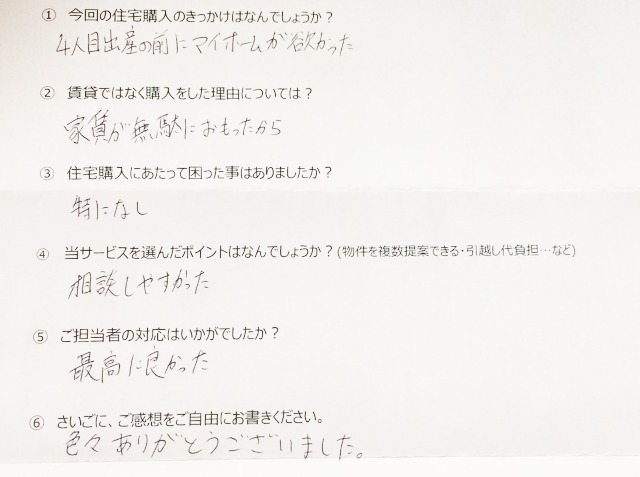 ① 今回の住宅購入のきっかけはなんでしょうか？
4人目出産の前にマイホームが欲かった
② 賃貸ではなく購入をした理由については？
家賃が無駄におもったから
③ 住宅購入にあたって困った事はありましたか？
特になし
④ 当サービスを選んだポイントはなんでしょうか？(物件を複数提案できる・引越し代負担…など)
相談しやすかった
⑤ ご担当者の対応はいかがでしたか？
最高に良かった
⑥ さいごに、ご感想をご自由にお書きください。
色々ありがとうございました。